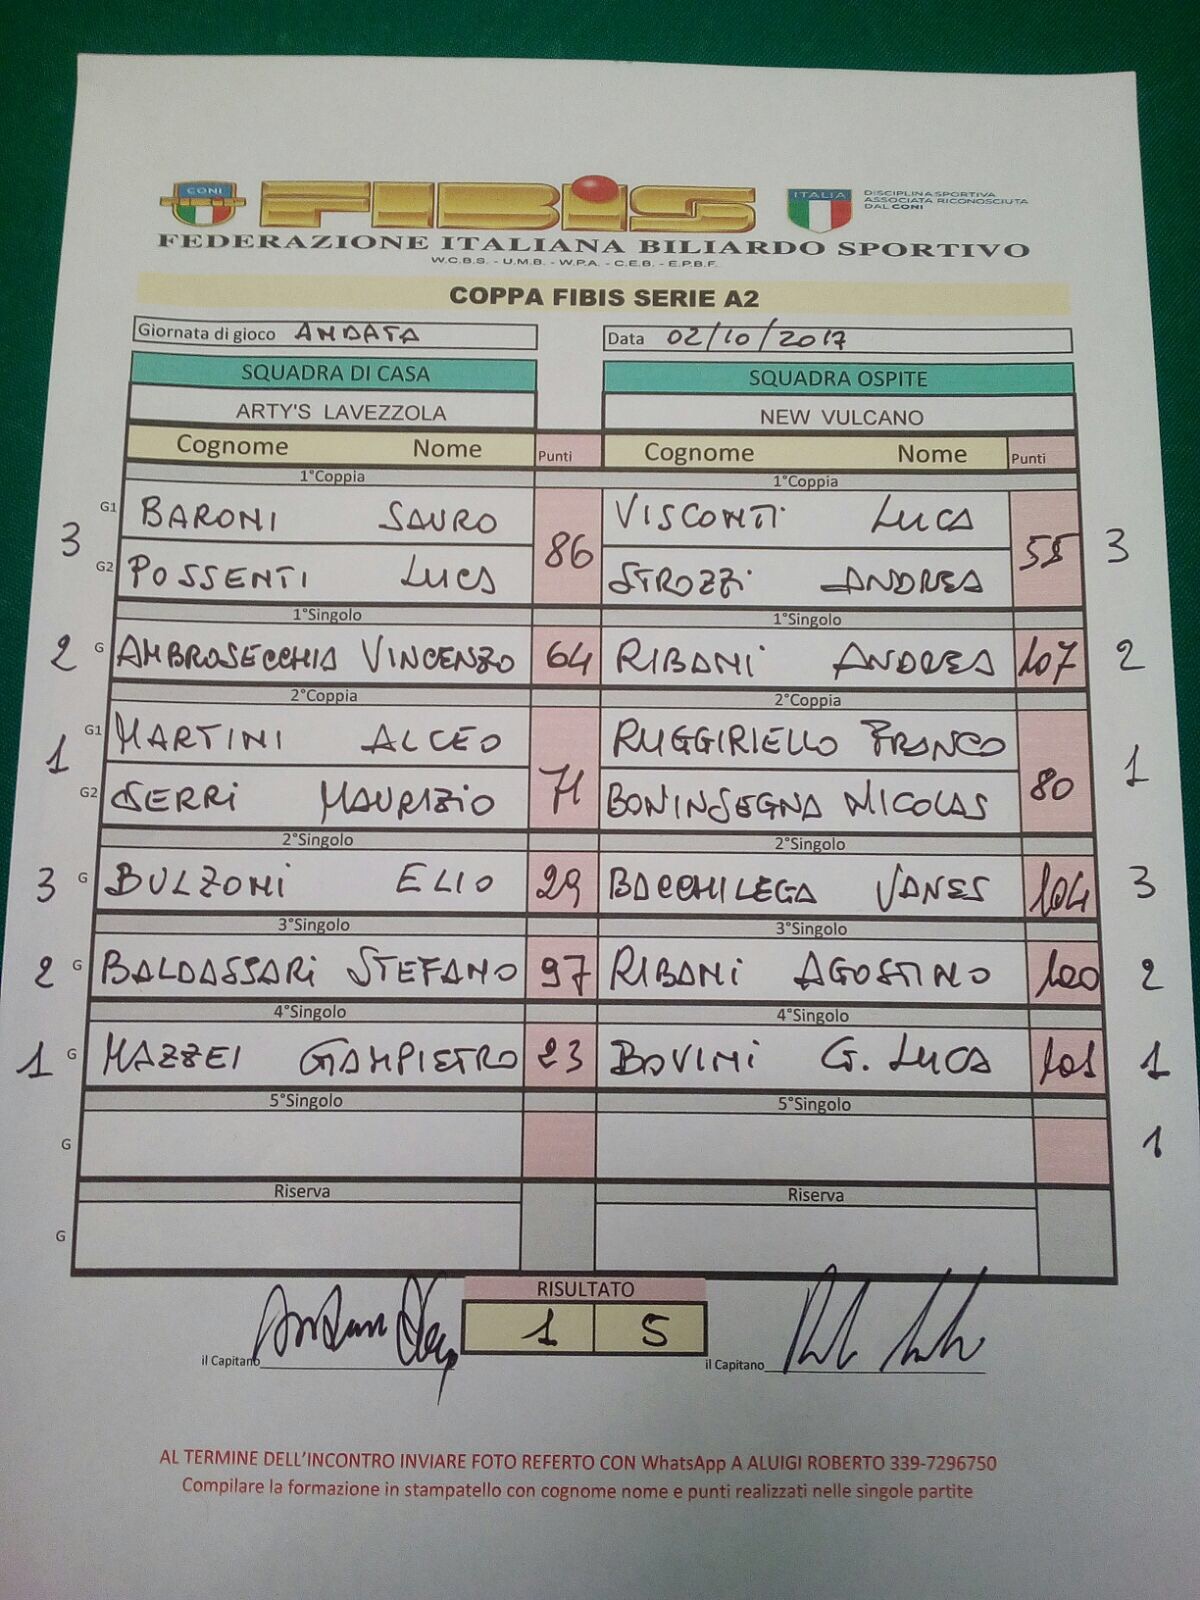 CONI FIBIS ITALIA DISCIPLINA SPORTIVA
ASSOCIATA RICONOSCIUTA
DAL CONI
FEDERAZIONE ITALIANA BILIARDO SPORTIVO
W.C.B.S. - U.M.B. - W.P.A. - C.E.B. - E.P.B.F.
COPPA FIBIS SERIE A2
Giornata di gioco ANDATA Data 02/10/2017
SQUADRA DI CASA SQUADRA OSPITE
ARTY'S LAVEZZOLA NEW VULCANO
Cognome Nome Punti Cognome Nome Punti
1°Coppia 1°Coppia
G1 BARONI SAURO VISCONTI LUCA
3 86 55 3
G2 POSSENTI LUCA STROZZI ANDREA
1°Singolo 1°Singolo
2 G AMBROSECCHIA VINCENZO 64 RIBANI ANDREA 107 2
2°Coppia 2°Coppia
G1 MARTINI ALCEO RUGGIRIELLO FRANCO
1 71 80 1
G2 SERRI MAURIZIO BONINSEGNA NICOLAS
2°Singolo 2°Singolo
3 G BULZONI ELIO 29 BACCHILEGA VANES 104 3
3°Singolo 3°Singolo
2 G BALDASSARI STEFANO 97 RIBANI AGOSTINO 100 2
4°Singolo 4°Singolo
1 G MAZZEI GIAMPIETRO 23 BOVINI G. LUCA 101 1
5°Singolo 5°Singolo
G 1
Riserva Riserva
G
RISULTATO
1 5
il Capitano il Capitano
AL TERMINE DELL'INCONTRO INVIARE FOTO REFERTO CON WhatsApp A ALUIGI ROBERTO 339-7296750
Compilare la formazione in stampatello con cognome nome e punti realizzati nelle singole partite